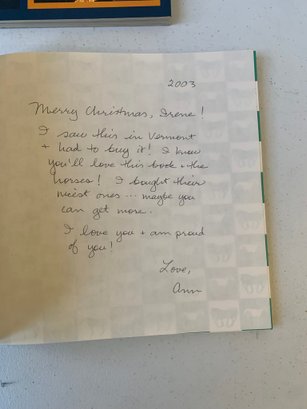 2003
Merry Christmas, Irene!
I saw this in Vermont
+ had to buy it! I know
you'll love this book + the
horses! I bought their
ones ... maybe you
can get more.
I love you + am proud
of you!
Love,
Ann